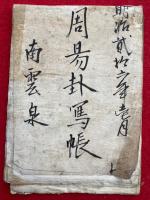 明治貳拾六年壱月
周易卦写帳
南雲泉